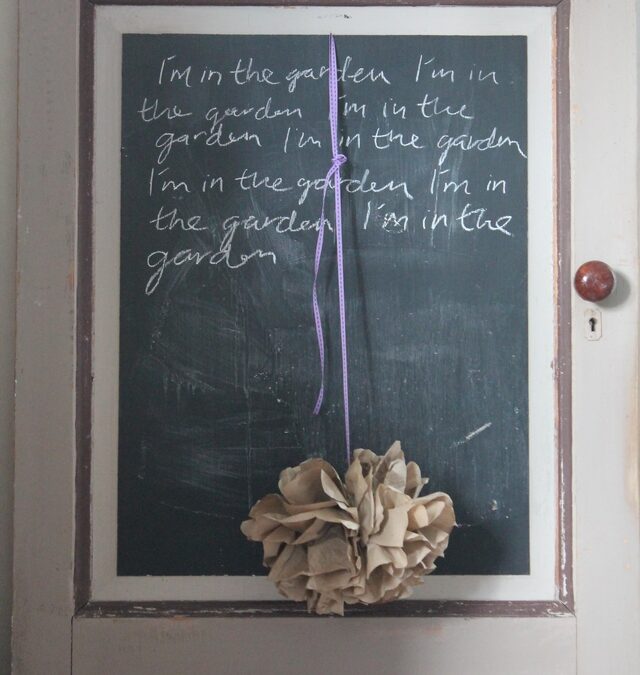 I'm in the garden I'm in
the garden I'm in the
garden I'm in the garden
I'm in the garden I'm in
the garden I'm in the
garden